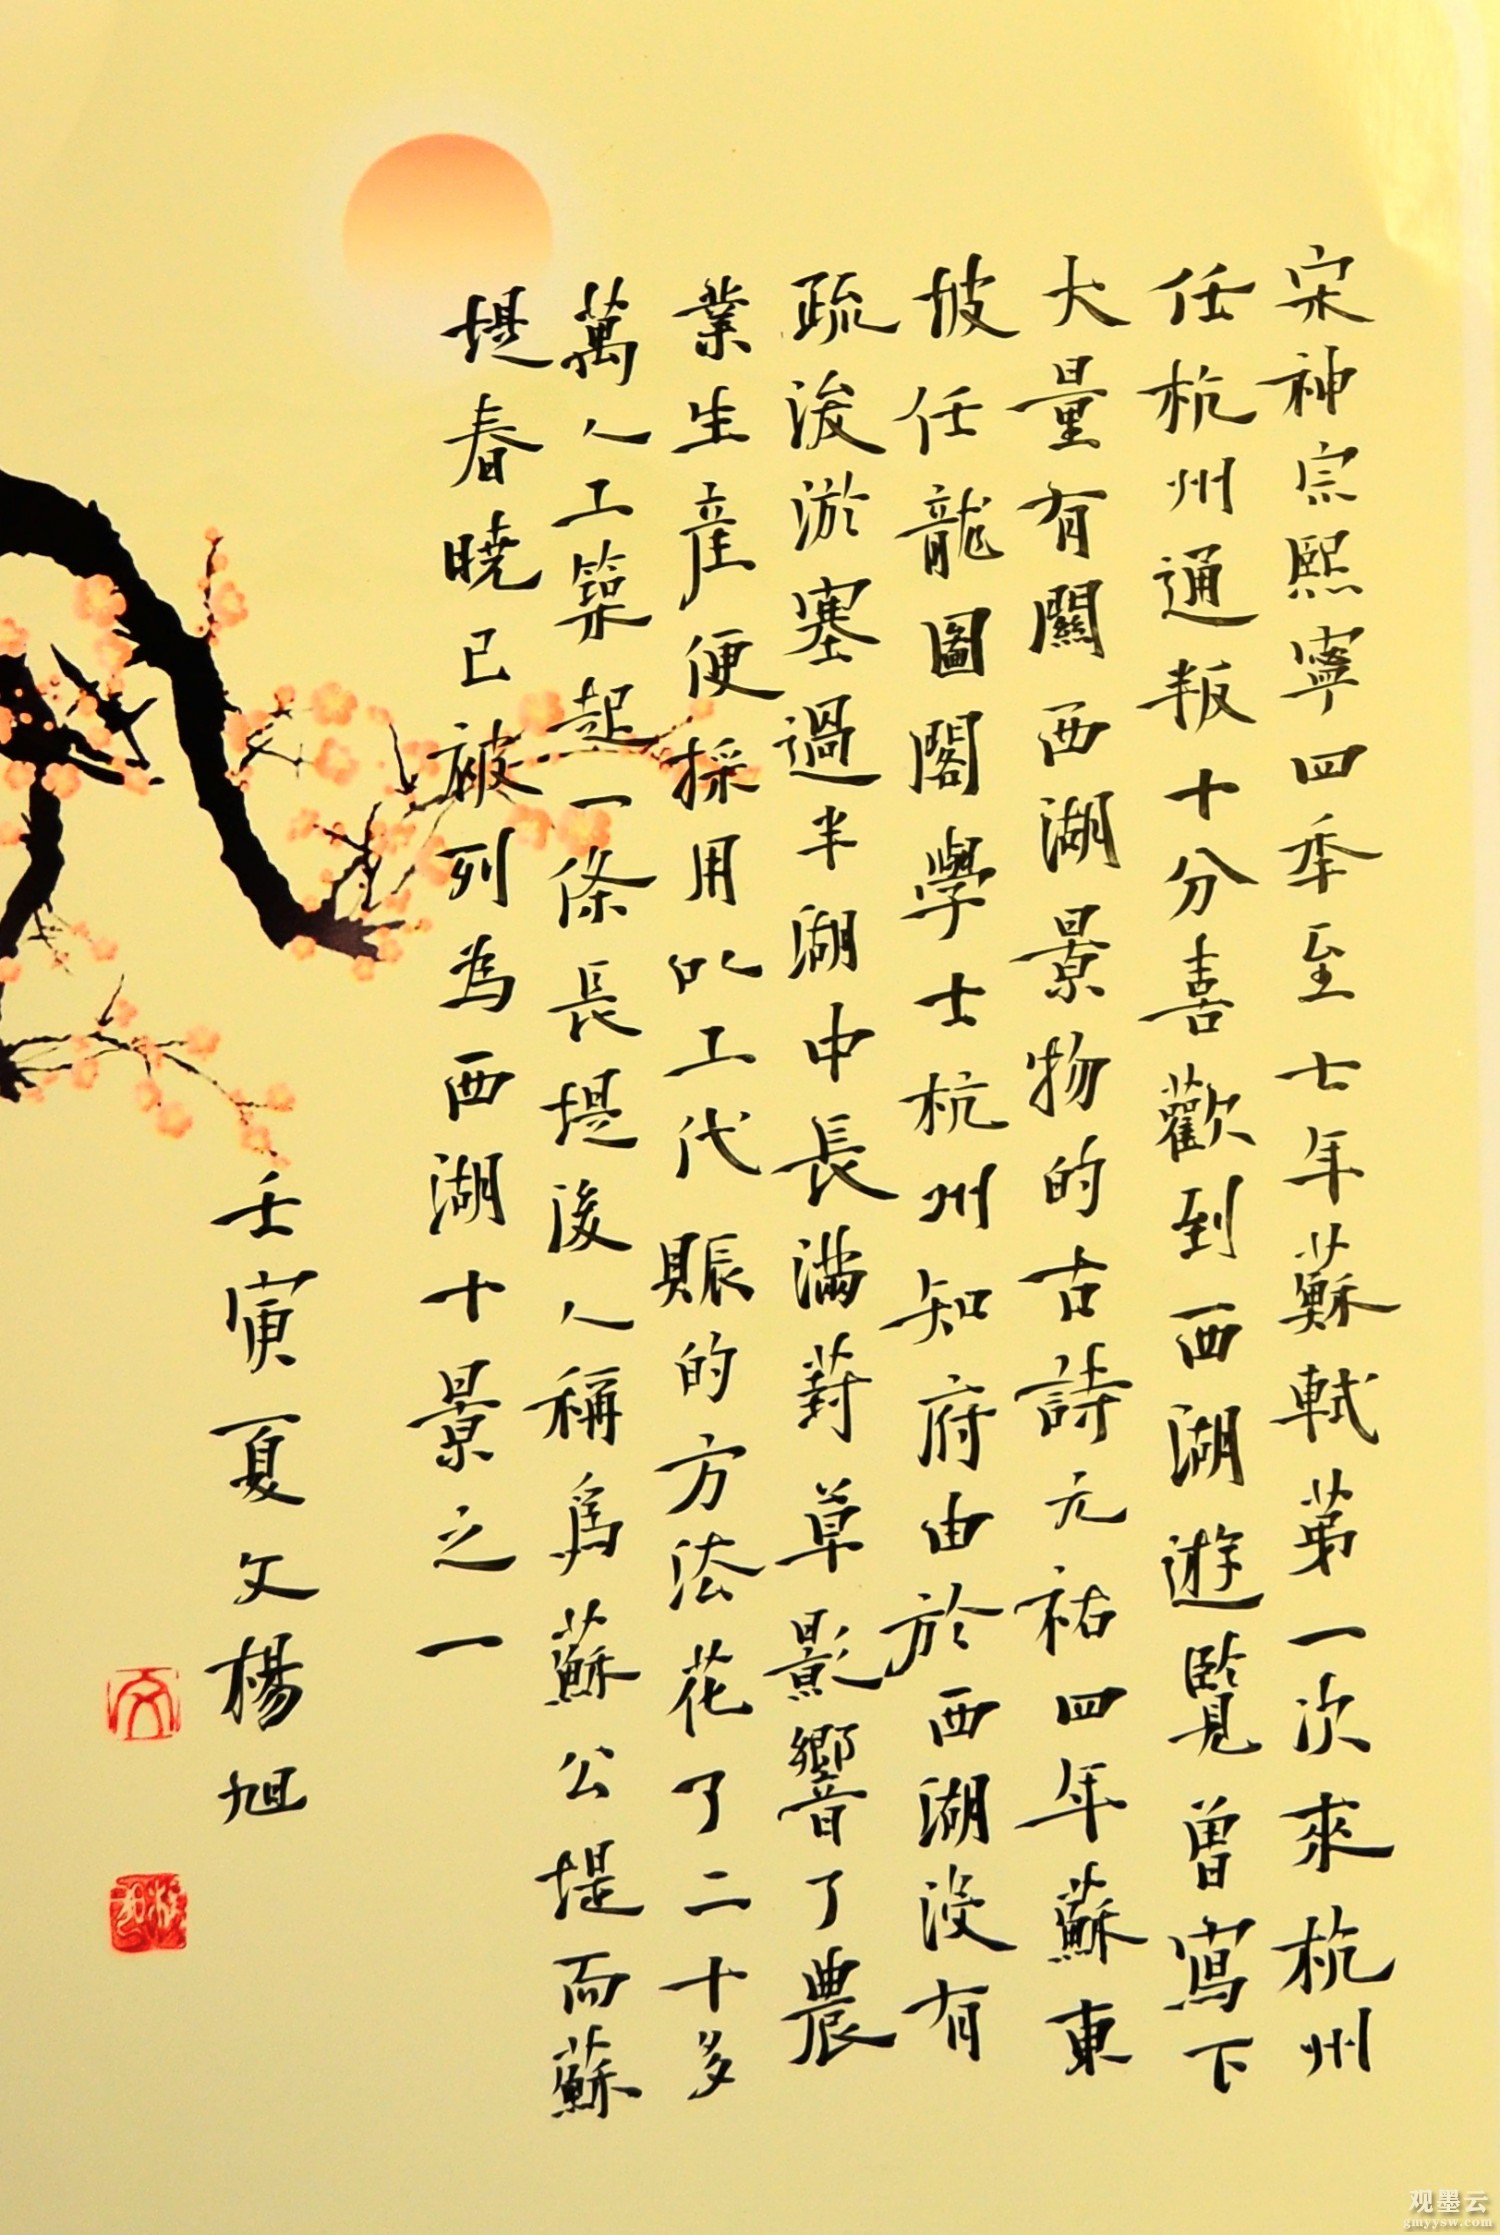 宋神宗熙寧四季至七年蘇軾苐一次來杭州
任杭州通叛十分喜歡到西湖遊覽曾寫下
大量有關西湖景物的古詩元祐四年蘇東
坡任龍圖閣學士杭州知府由於西湖沒有
疏浚淤塞過半湖中長滿葑草影響了農
業生産便採用以工代賬的方法花了二十多
萬人工築起一條長堤後人稱爲蘇公堤而蘇
堤春曉已被列為西湖十景之一
壬寅夏文楊旭
文
观墨云
gmyysw.com